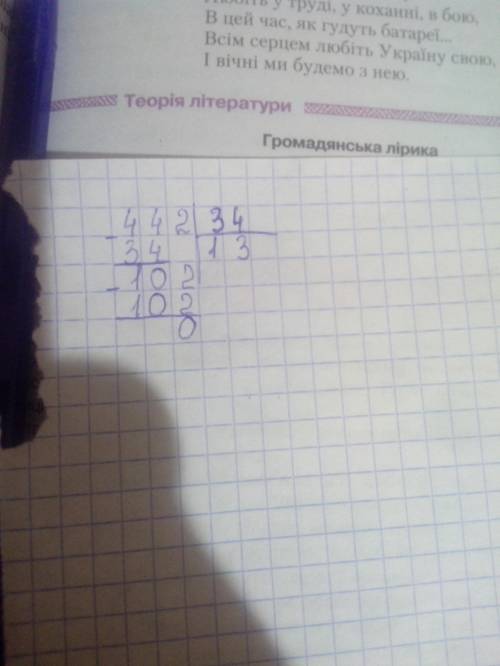 Любіть у труді, у коханні, в бою,
В цей час, як гудуть батареї...
Всім серцем любіть Україну свою,
І вічні ми будемо з нею.
Теорія літератури
Громадянська лірика
442 34
- 34 13
- 102
102
0